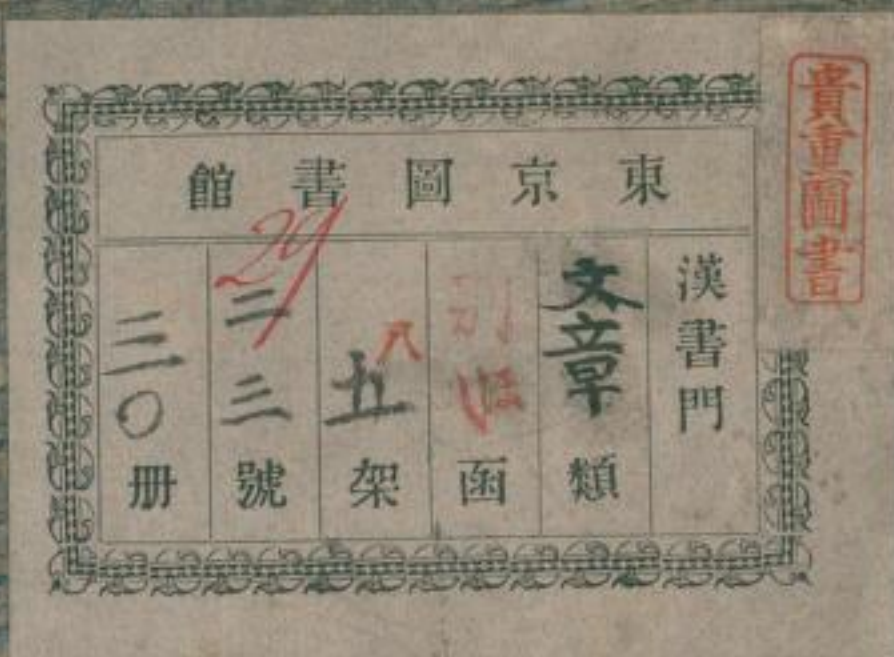 貴重圖書
東京圖書館
漢書門
文章類
函
八五架
29二三號
三〇册